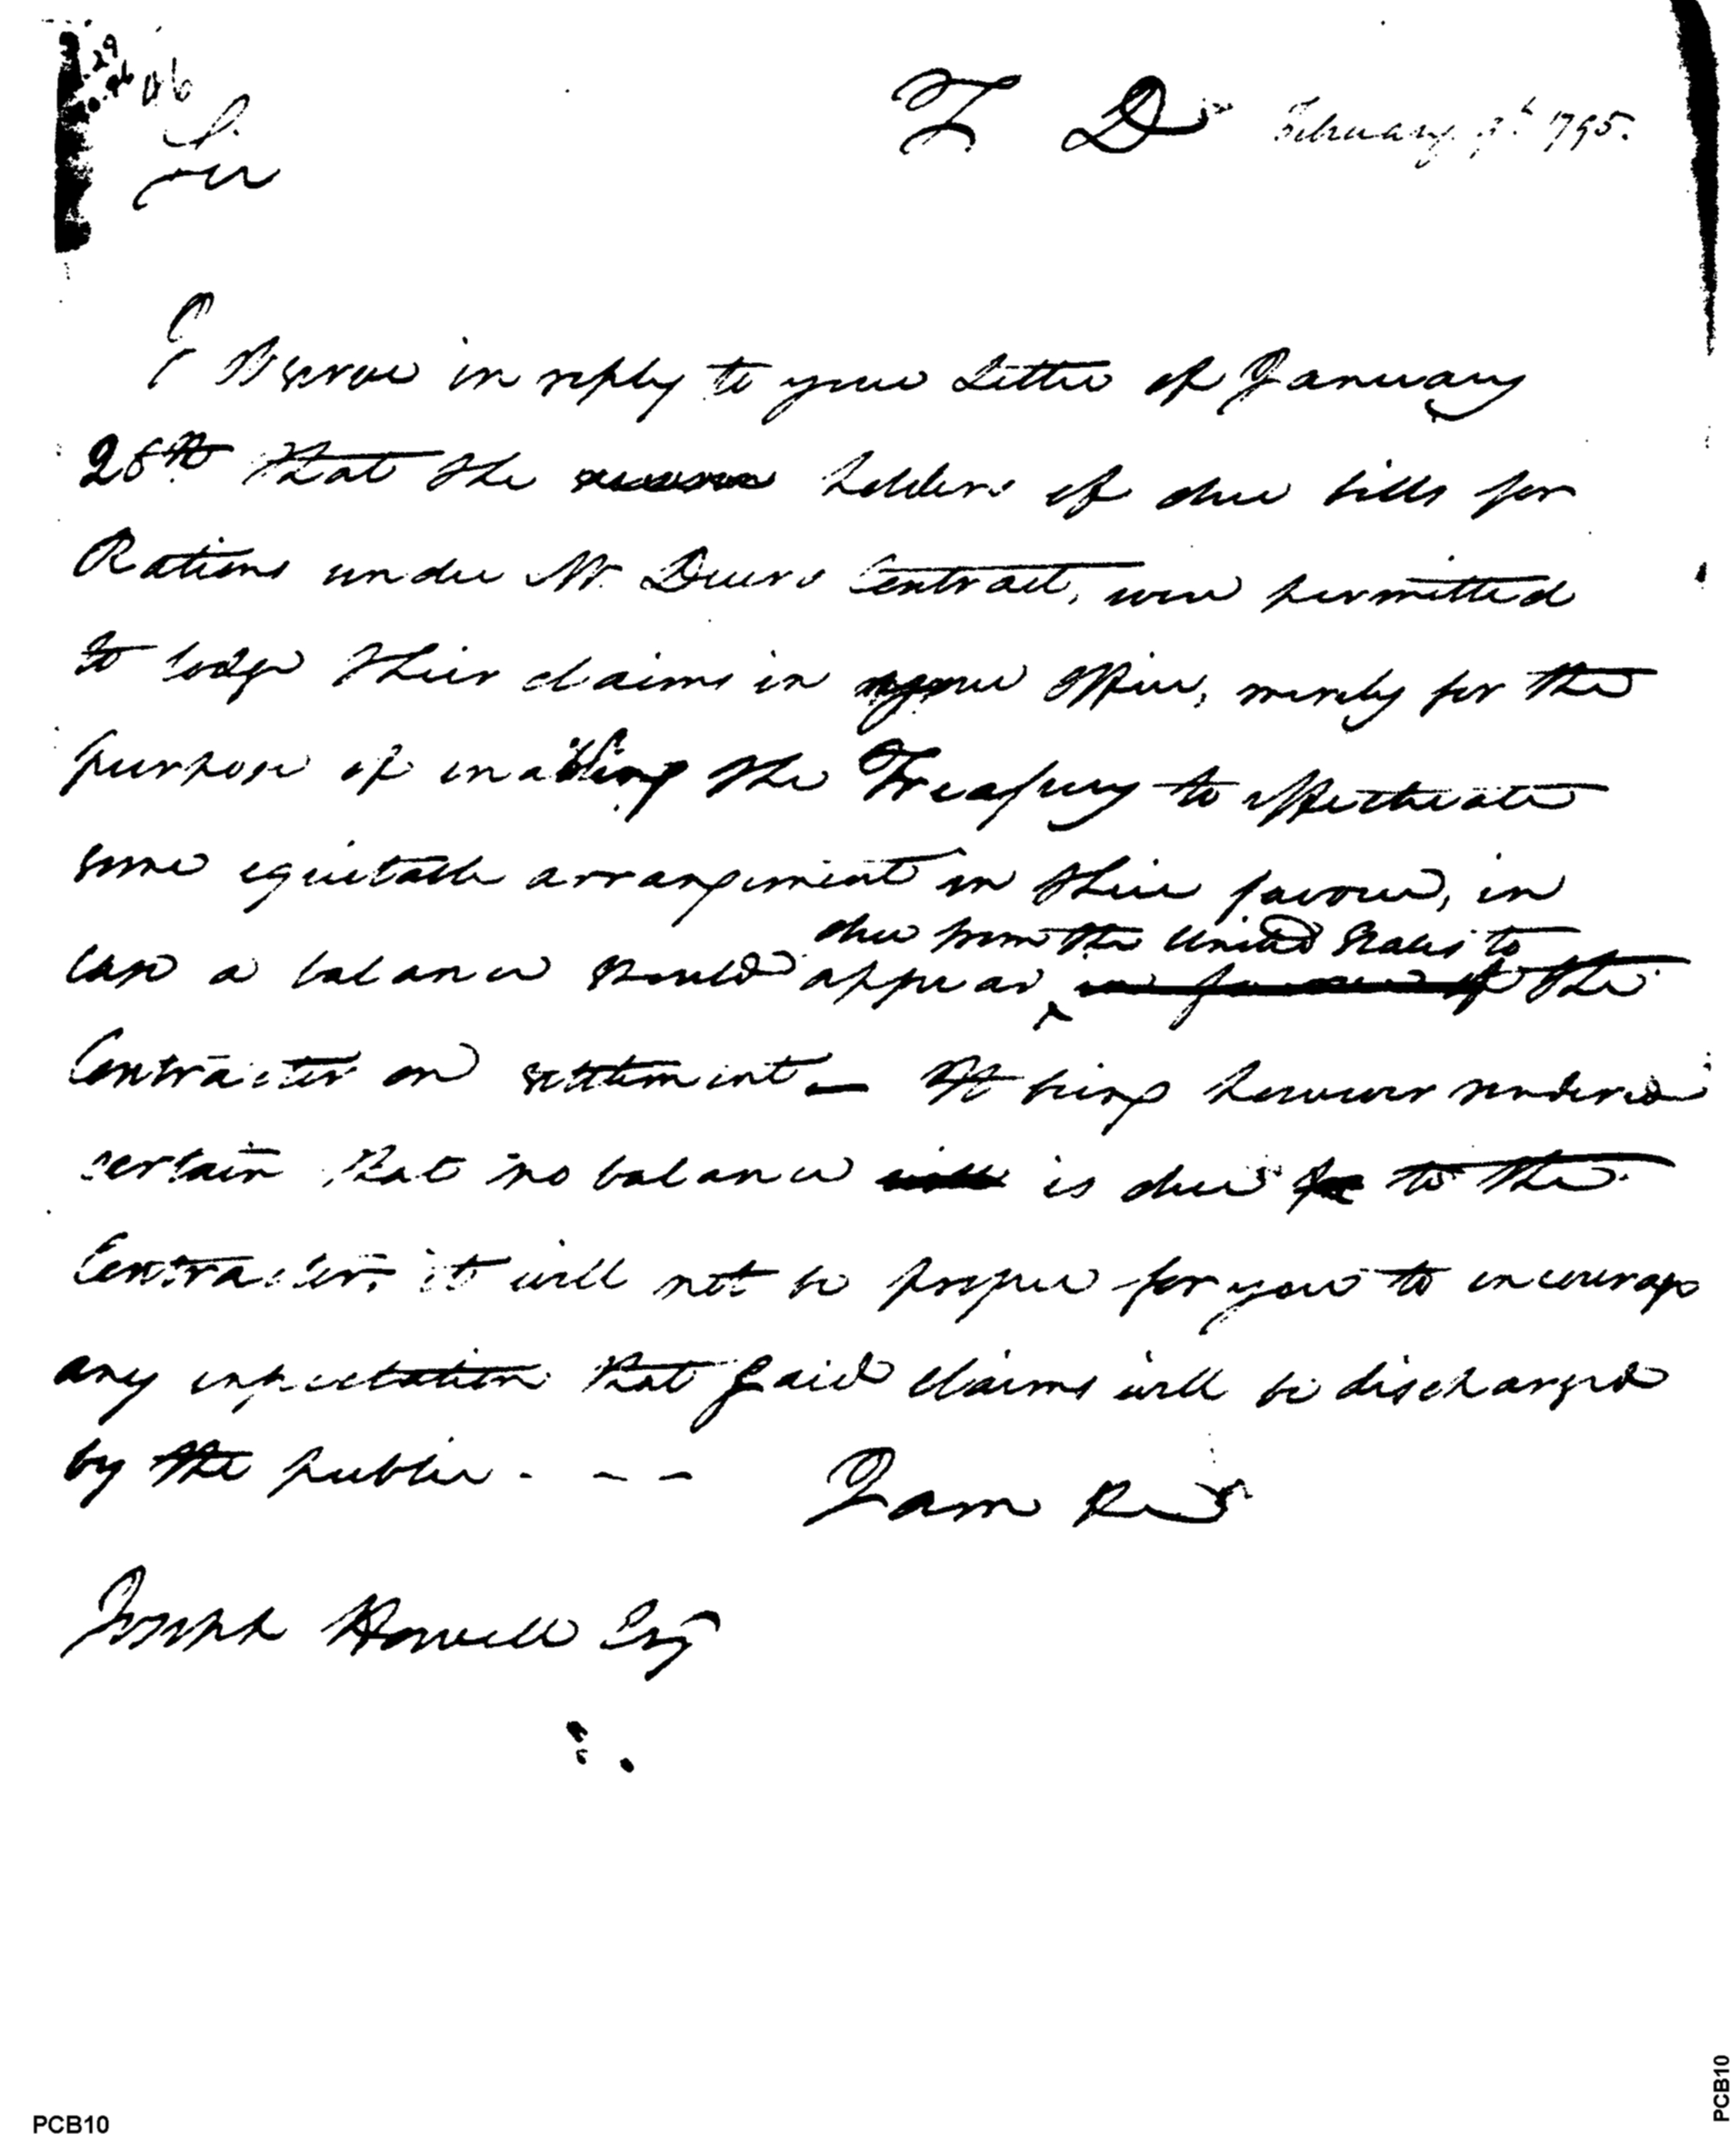 T. Dr February 7h 1795.
Sir
I Observe in reply to your Letter of January
28th that the holders of due bills for
Rations under Mr Duers Contract, were permitted
to lodge their claims in your Office, merely for the
purpose of enabling the Treasury to effectuate
some equitable arrangement in their favour, in
due from the United States to
case a balance should appear, ^ in favour of the
Contractor on settlement – It being however rendered
certain that no balance will is due to the
Contractor, it will not be proper for you to encourage
any expectation that said claims will be discharged
by the public - - - I am
Joseph Howell Esq
PCB10
PCB10